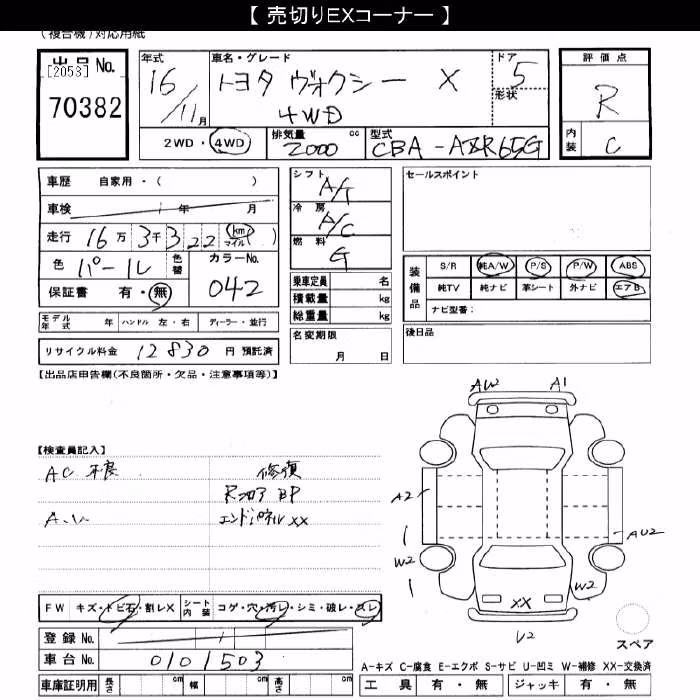 【 売切りEXコーナー 】
(複合機)対応用紙
出品No. [2053] 70382
年式 16/11月
車名・グレード トヨタ ヴォクシー X 4WD
ドア形状 5
評価点 R
内装 C
2WD・4WD
排気量 cc 2000
型式 CBA-AZR65G
車歴 自家用・( )
車検 年 月
走行 16万3千322 km マイル ( )
色 パール 色替 カラーNo. 042
保証書 有・無
モデル年式 年 ハンドル 左・右 ディーラー・並行
リサイクル料金 12830 円 預託済
シフト A/T
冷房 A/C
燃料 G
乗車定員 名
積載量 kg
総重量 kg
名変期限 月 日
セールスポイント
装備品 S/R 純A/W P/S P/W ABS
純TV 純ナビ 革シート 外ナビ エアB
ナビ型番:
後日品
【出品店申告欄(不良個所・欠品・注意事項等)】
【検査員記入】
AC 不良 修復
Rフロア BP
エンドパネル XX
AW2 A1
A2
AU2
W2
W2
XX
U2
スペア
FW キズ・トビ石・割レX シート内装 コゲ・穴・汚レ・シミ・破レ・スレ
登録 No.
車台 No. 0101503
車庫証明用 長さ cm 幅 cm 高さ cm
A−キズ C−腐食 E−エクボ S−サビ U−凹ミ W−補修 XX−交換済
工具 有・無 ジャッキ 有・無